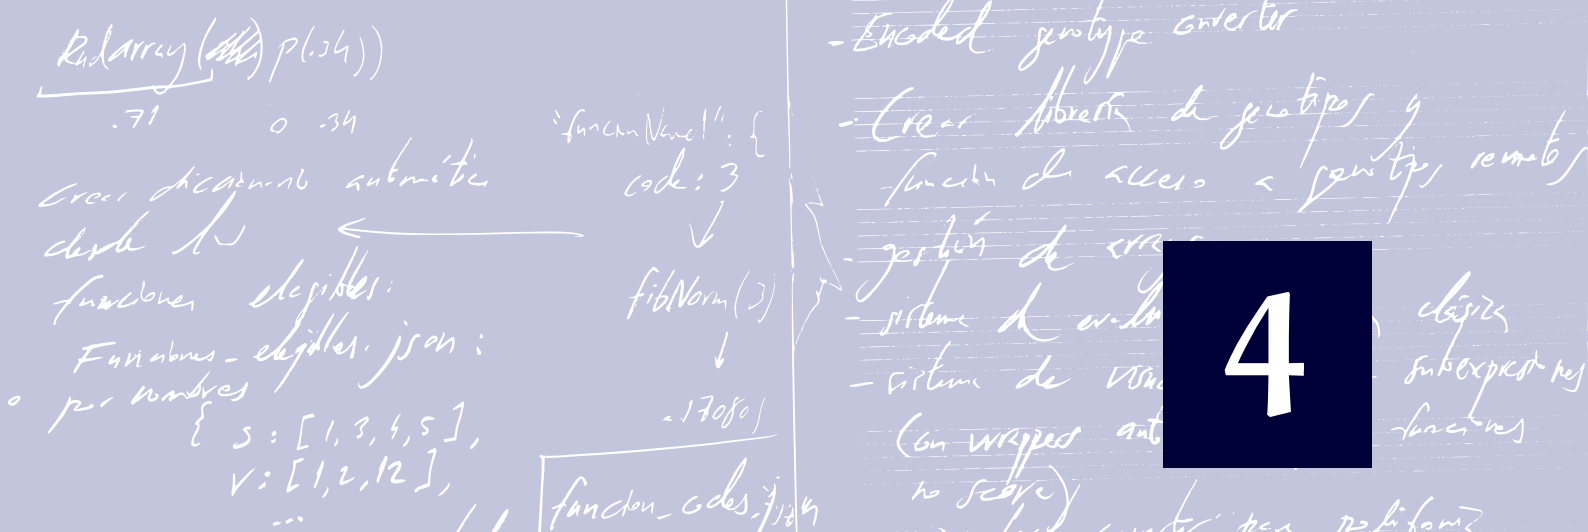 Rndarray( p(.34))
.71 0 .34
crear diccionario automático
desde las
funciones elegibles:
Funciones_elegibles.json:
por nombres
{ s: [1, 3, 4, 5],
v: [1, 2, 12],
...
"funcionName1": {
code: 3
fibNorm(3)
.17080
funcion_codes.json
- Encoded genotype converter
- Crear librería de genotipos y
función de acceso a genotipos remotos
- gestión de
- sistema de clásica
- sistema de subexpresiones
(con wrappers funciones
no score)
4